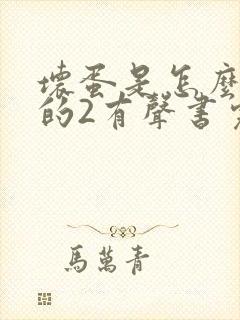 壞蛋是怎麼
的2有聲書
馬萬青